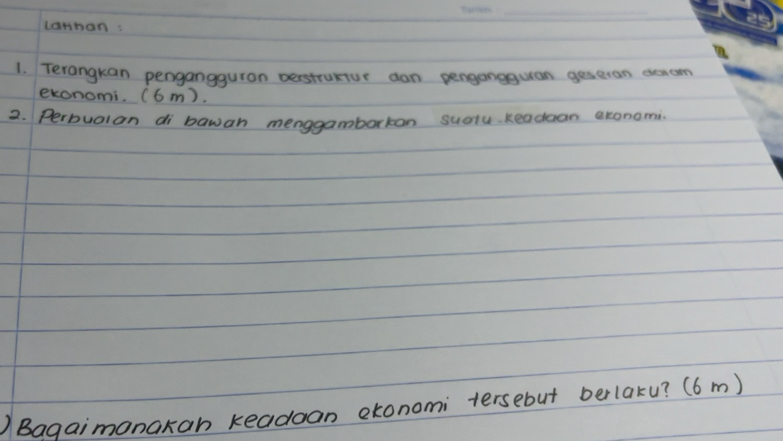 Latihan :
1. Terangkan pengangguran berstruktur dan pengangguran geseran dalam
ekonomi. (6 m).
2. Perbualan di bawah menggambarkan suatu keadaan ekonomi.
) Bagaimanakah keadaan ekonomi tersebut berlaku? (6 m)
25